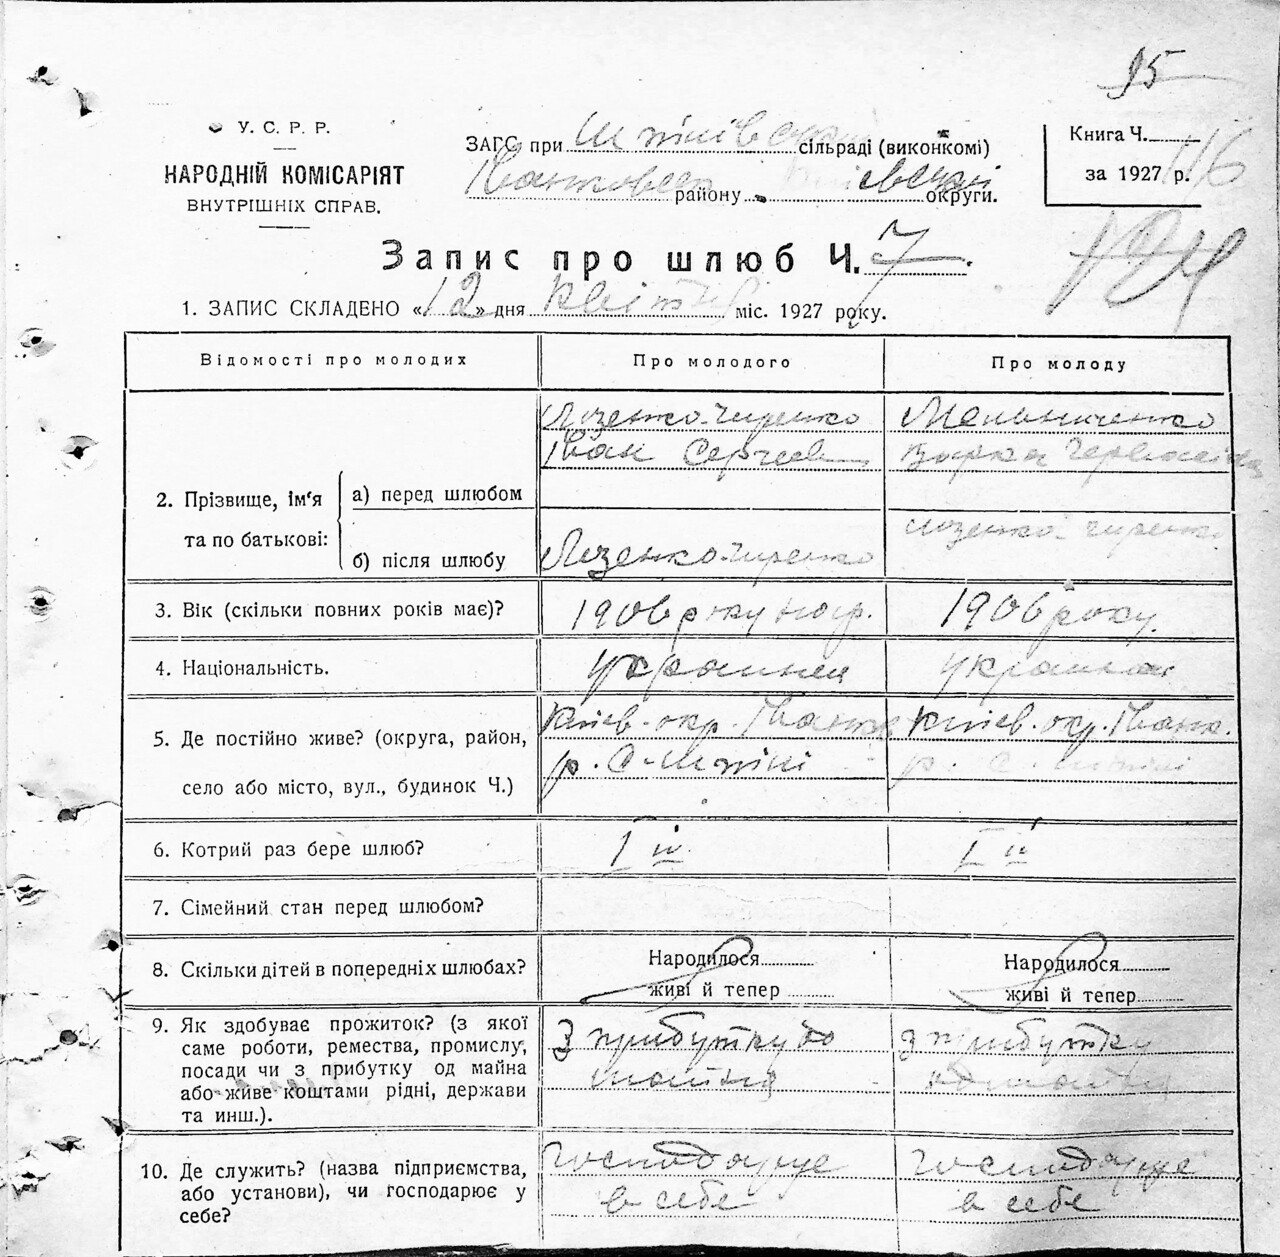 95
У. С. Р. Р.
НАРОДНІЙ КОМІСАРІЯТ
ВНУТРІШНІХ СПРАВ.
ЗАГС при сільраді (виконкомі)
району округи.
Книга Ч. 116
за 1927 р.
Запис про шлюб Ч. 7.
1. ЗАПИС СКЛАДЕНО «12» дня міс. 1927 року.
Відомості про молодих Про молодого Про молоду
2. Прізвище, ім'я та по батькові:
а) перед шлюбом
Лизенко-Чиренко Мельниченко
Іван
б) після шлюбу
Лизенко-Чиренко Лизенко-Чиренко
3. Вік (скільки повних років має)? 1906 року 1906 року.
4. Національність. украинец украинка
5. Де постійно живе? (округа, район,
село або місто, вул., будинок Ч.)
Київ. окр. Київ. окр. Іванк.
р. С. р. С.
6. Котрий раз бере шлюб? І ій І ій
7. Сімейний стан перед шлюбом?
8. Скільки дітей в попередніх шлюбах? Народилося Народилося
живі й тепер живі й тепер
9. Як здобуває прожиток? (з якої
саме роботи, ремества, промислу,
посади чи з прибутку од майна
або живе коштами рідні, держави
та инш.).
З прибутку з прибутку
10. Де служить? (назва підприємства,
або установи), чи господарює у
себе?
Господарує господарує
в себе в себе